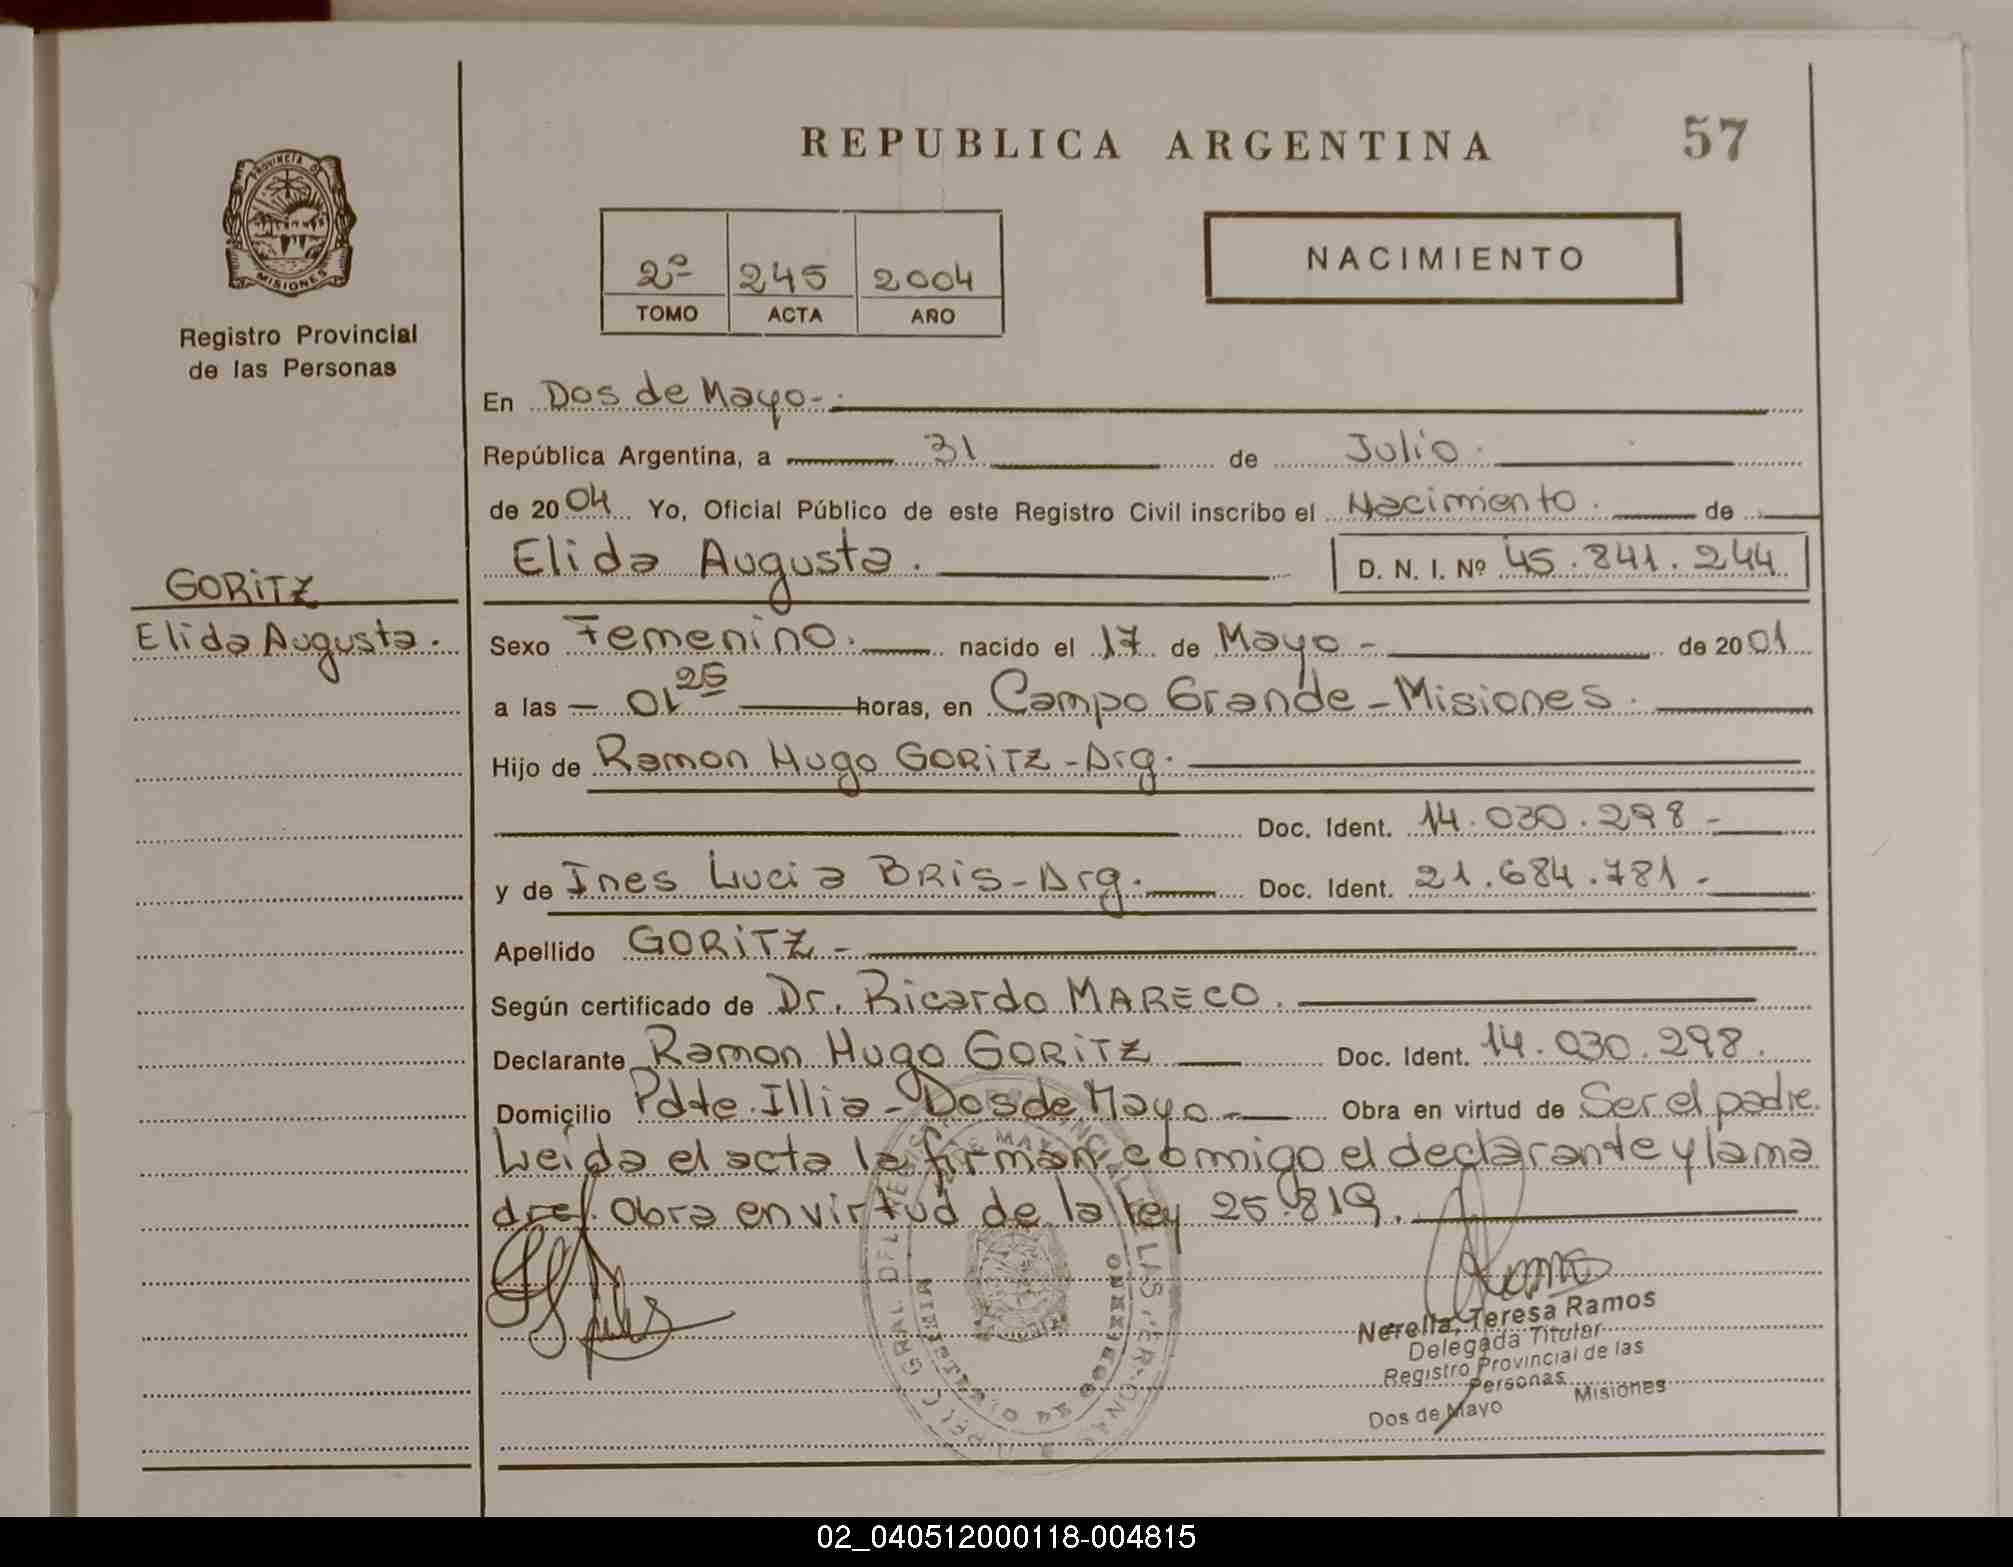 REPUBLICA ARGENTINA
57
PROVINCIA DE
MISIONES
Registro Provincial
de las Personas
2º 245 2004
TOMO ACTA AÑO
NACIMIENTO
En Dos de Mayo-.
República Argentina, a 31 de Julio.
de 2004 Yo, Oficial Público de este Registro Civil inscribo el Nacimiento. de
Elida Augusta. D. N. I. Nº 45.841.244
GORiTZ
Elida Augusta.
Sexo Femenino. nacido el 17 de Mayo- de 2001
a las - 01 25 horas, en Campo Grande-Misiones.
Hijo de Ramon Hugo GORiTZ-Arg.
Doc. Ident. 14.030.298-
y de Ines Lucia BRiS-Arg. Doc. Ident. 21.684.781-
Apellido GORiTZ-
Según certificado de Dr. Ricardo MARECO.
Declarante Ramon Hugo GORiTZ Doc. Ident. 14.030.298.
Domicilio Pdte. Illia-Dos de Mayo- Obra en virtud de Ser el padre.
Leida el acta la firman conmigo el declarante y la ma
dre/. Obra en virtud de la ley 25.819.
Nerella, Teresa Ramos
Delegada Titular
Registro Provincial de las
Personas
Dos de Mayo Misiones
02_040512000118-004815